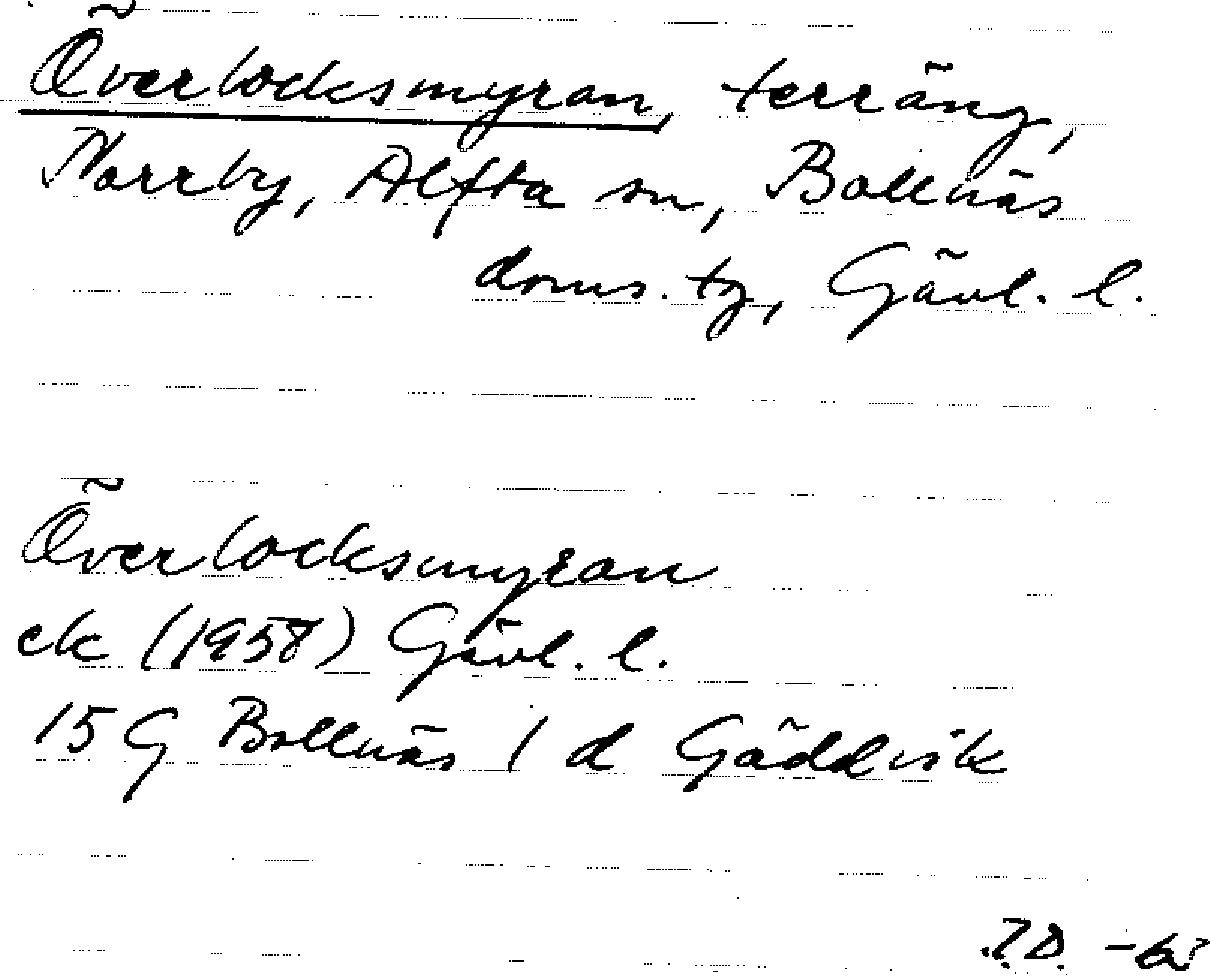 Överlocksmyran, terräng,
Norrby, Alfta sn, Bollnäs
doms. tg, Gävl. l.
Överlocksmyran
ek (1958) Gävl. l.
15 G Bollnäs 1 d Gäddvik